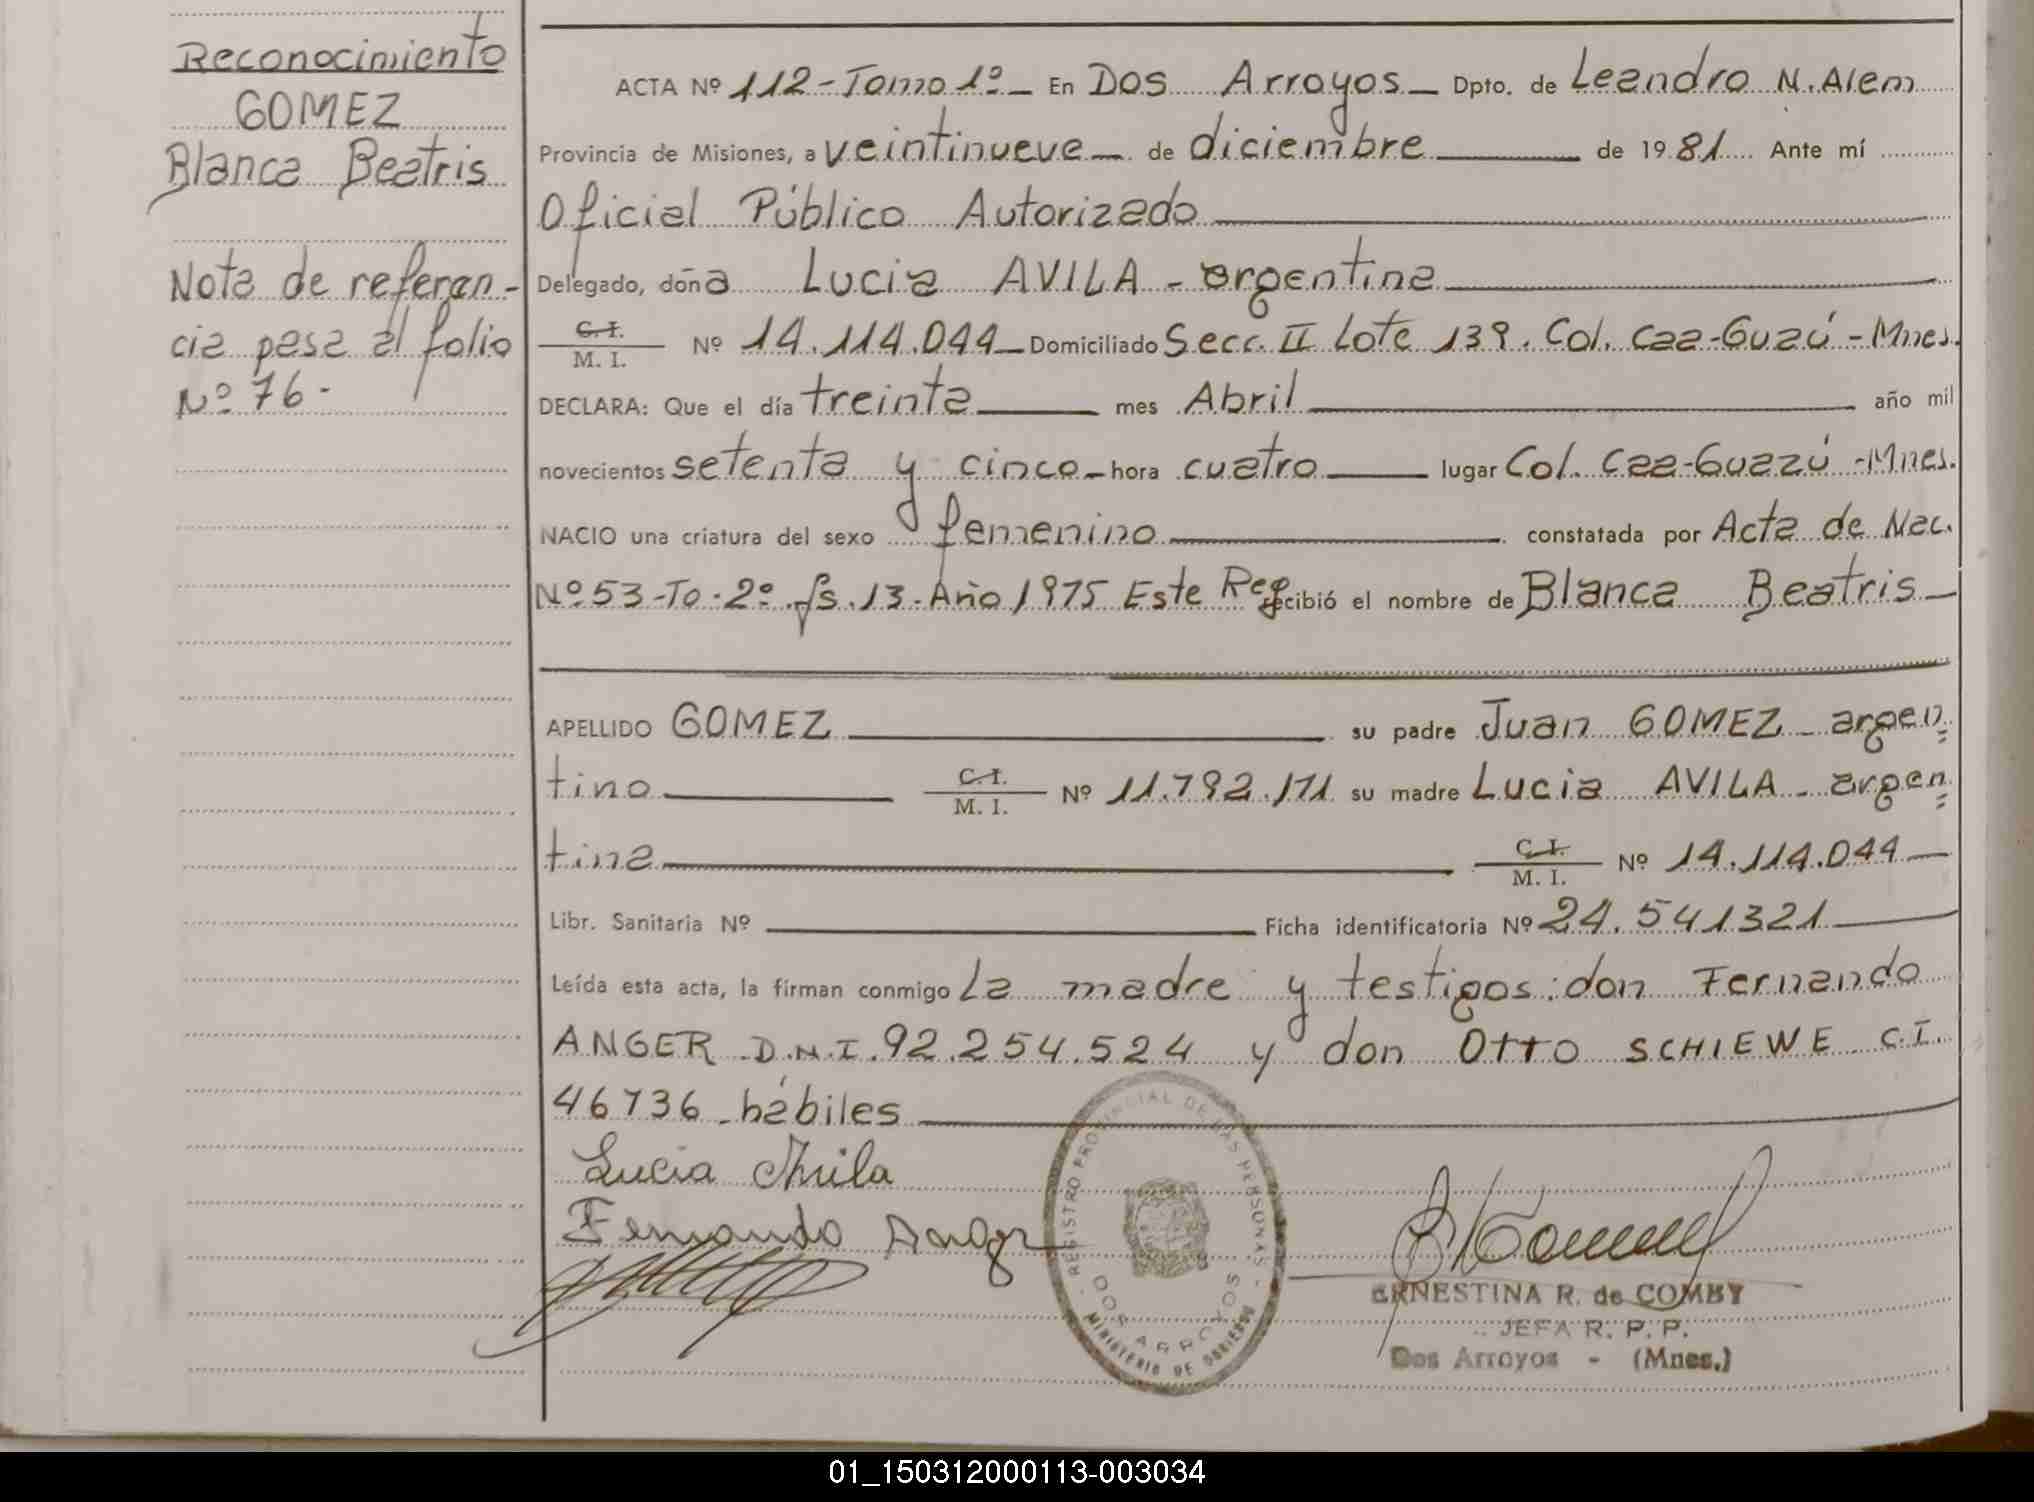 Reconocimiento
GOMEZ
Blanca Beatris
Nota de referen-
cia pasa al folio
Nº 76-
ACTA Nº 112-Tomo 1º- En Dos Arroyos- Dpto. de Leandro N. Alem
Provincia de Misiones, a veintinueve- de diciembre de 1981 Ante mí
Oficial Público Autorizado
Delegado, doña Lucia AVILA - argentina
C.I. M. I. Nº 14.114.044 Domiciliado Secc. II Lote 139. Col. Caa-Guazú - Mnes.
DECLARA: Que el día treinta mes Abril año mil
novecientos setenta y cinco- hora cuatro lugar Col. Caa-Guazú -Mnes.
NACIO una criatura del sexo femenino constatada por Acta de Nac.
Nº 53-To-2º-fs.13-Año 1975 Este Reg recibió el nombre de Blanca Beatris-
APELLIDO GOMEZ su padre Juan GOMEZ - argen=
tino C.I. M. I. Nº 11.792.171 su madre Lucia AVILA - argen=
tina C.I. M. I. Nº 14.114.044-
Libr. Sanitaria Nº Ficha identificatoria Nº 24.541321
Leída esta acta, la firman conmigo La madre y testigos: don Fernando
ANGER D.N.I. 92.254.524 y don Otto SCHIEWE C.I.
46736 - hábiles
Lucia Avila
Fernando Anger
REGISTRO PROVINCIAL DE LAS PERSONAS
DOS ARROYOS
MINISTERIO DE GOBIERNO
ERNESTINA R. de COMBY
JEFA R. P. P.
Dos Arroyos - (Mnes.)
01_150312000113-003034